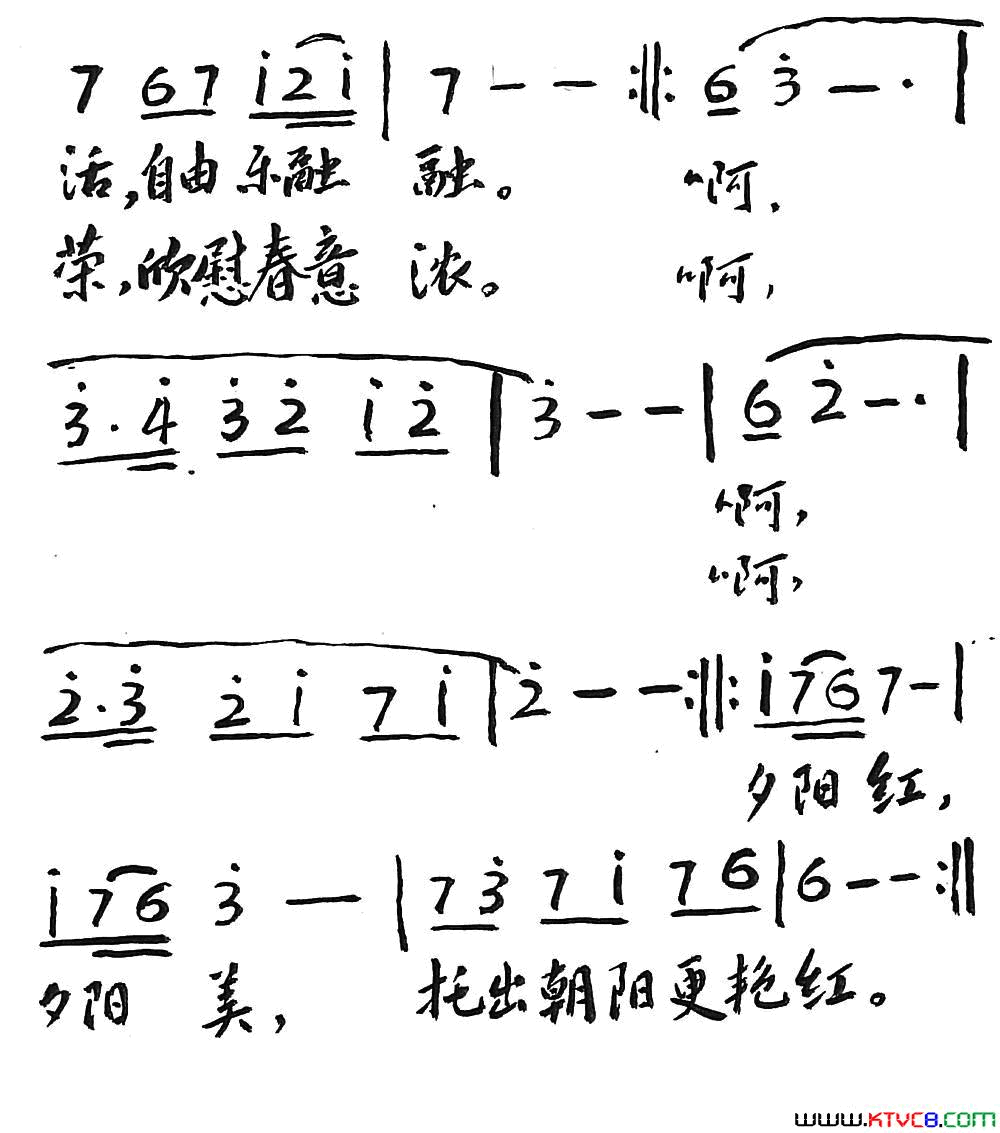 7 67 i̇2̇i̇ | 7 - - :||: 6 3̇ - · |
活,自由 乐融 融。 啊,
荣,欣慰春意 浓。 啊,
3̇·4̇ 3̇2̇ i̇2̇ | 3̇ - - | 6 2̇ - · |
啊,
啊,
2̇·3̇ 2̇i̇ 7i̇ | 2̇ - - :||: i̇76 7 - |
夕阳 红,
i̇76 3̇ - | 73̇ 7i̇ 76 | 6 - - :||
夕阳 美, 托出朝阳更艳红。
www.KTVC8.com